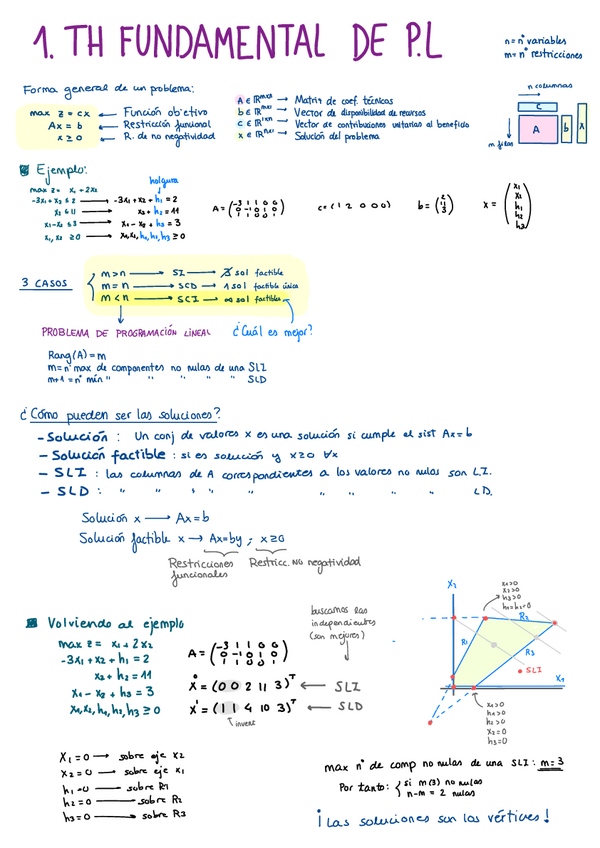 1. TH FUNDAMENTAL DE P.L
n = nº variables
m = nº restricciones
Forma general de un problema:
max z = cx ← Función objetivo
Ax = b ← Restricción funcional
x ≥ 0 ← R. de no negatividad
A ∈ ℝᵐˣⁿ → Matriz de coef. técnicos
b ∈ ℝᵐˣ¹ → Vector de disponibilidad de recursos
c ∈ ℝ¹ˣⁿ → Vector de contribuciones unitarias al beneficio
x ∈ ℝⁿˣ¹ → Solución del problema
n columnas
C
A b x
m filas
Ejemplo:
holgura
max z = x₁ + 2x₂
-3x₁ + x₂ ≤ 2 → -3x₁ + x₂ + h₁ = 2
x₂ ≤ 11 → x₂ + h₂ = 11
x₁ - x₂ ≤ 3 → x₁ - x₂ + h₃ = 3
x₁, x₂ ≥ 0 → x₁, x₂, h₁, h₂, h₃ ≥ 0
c = (1 2 0 0 0)
b = (2 11 3)
x = (x₁ x₂ h₁ h₂ h₃)
3 CASOS
m > n → SI → ∄ sol factible
m = n → SCD → 1 sol factible única
m < n → SCI → ∞ sol factibles
PROBLEMA DE PROGRAMACIÓN LINEAL
¿Cuál es mejor?
Rang(A) = m
m = nº max de componentes no nulas de una SLI
m+1 = nº mín " " " " " SLD
¿Cómo pueden ser las soluciones?
- Solución : Un conj de valores x es una solución si cumple el sist Ax = b
- Solución factible : si es solución y x ≥ 0 ∀x
- SLI : las columnas de A correspondientes a los valores no nulos son L.I.
- SLD : " " " " " " " " " LD.
Solución x → Ax = b
Solución factible x → Ax = b y ; x ≥ 0
Restricciones funcionales
Restricc. NO negatividad
Volviendo al ejemplo
max z = x₁ + 2x₂
-3x₁ + x₂ + h₁ = 2
x₂ + h₂ = 11
x₁ - x₂ + h₃ = 3
x₁, x₂, h₁, h₂, h₃ ≥ 0
buscamos las
independientes
(son mejores)
x̂ = (0 0 2 11 3)ᵀ ← SLI
x' = (1 1 4 10 3)ᵀ ← SLD
x₂
x₁>0
x₂>0
h₃>0
h₁=h₂=0
R₂
R₃
SLI
x₁
x₁>0
h₁>0
h₂>0
x₂=0
h₃=0
x₁ = 0 → sobre eje x₂
x₂ = 0 → sobre eje x₁
h₁ = 0 → sobre R₁
h₂ = 0 → sobre R₂
h₃ = 0 → sobre R₃
max nº de comp no nulas de una SLI : m = 3
Por tanto: si m(3) no nulas
n-m = 2 nulas
¡Las soluciones son los vértices!